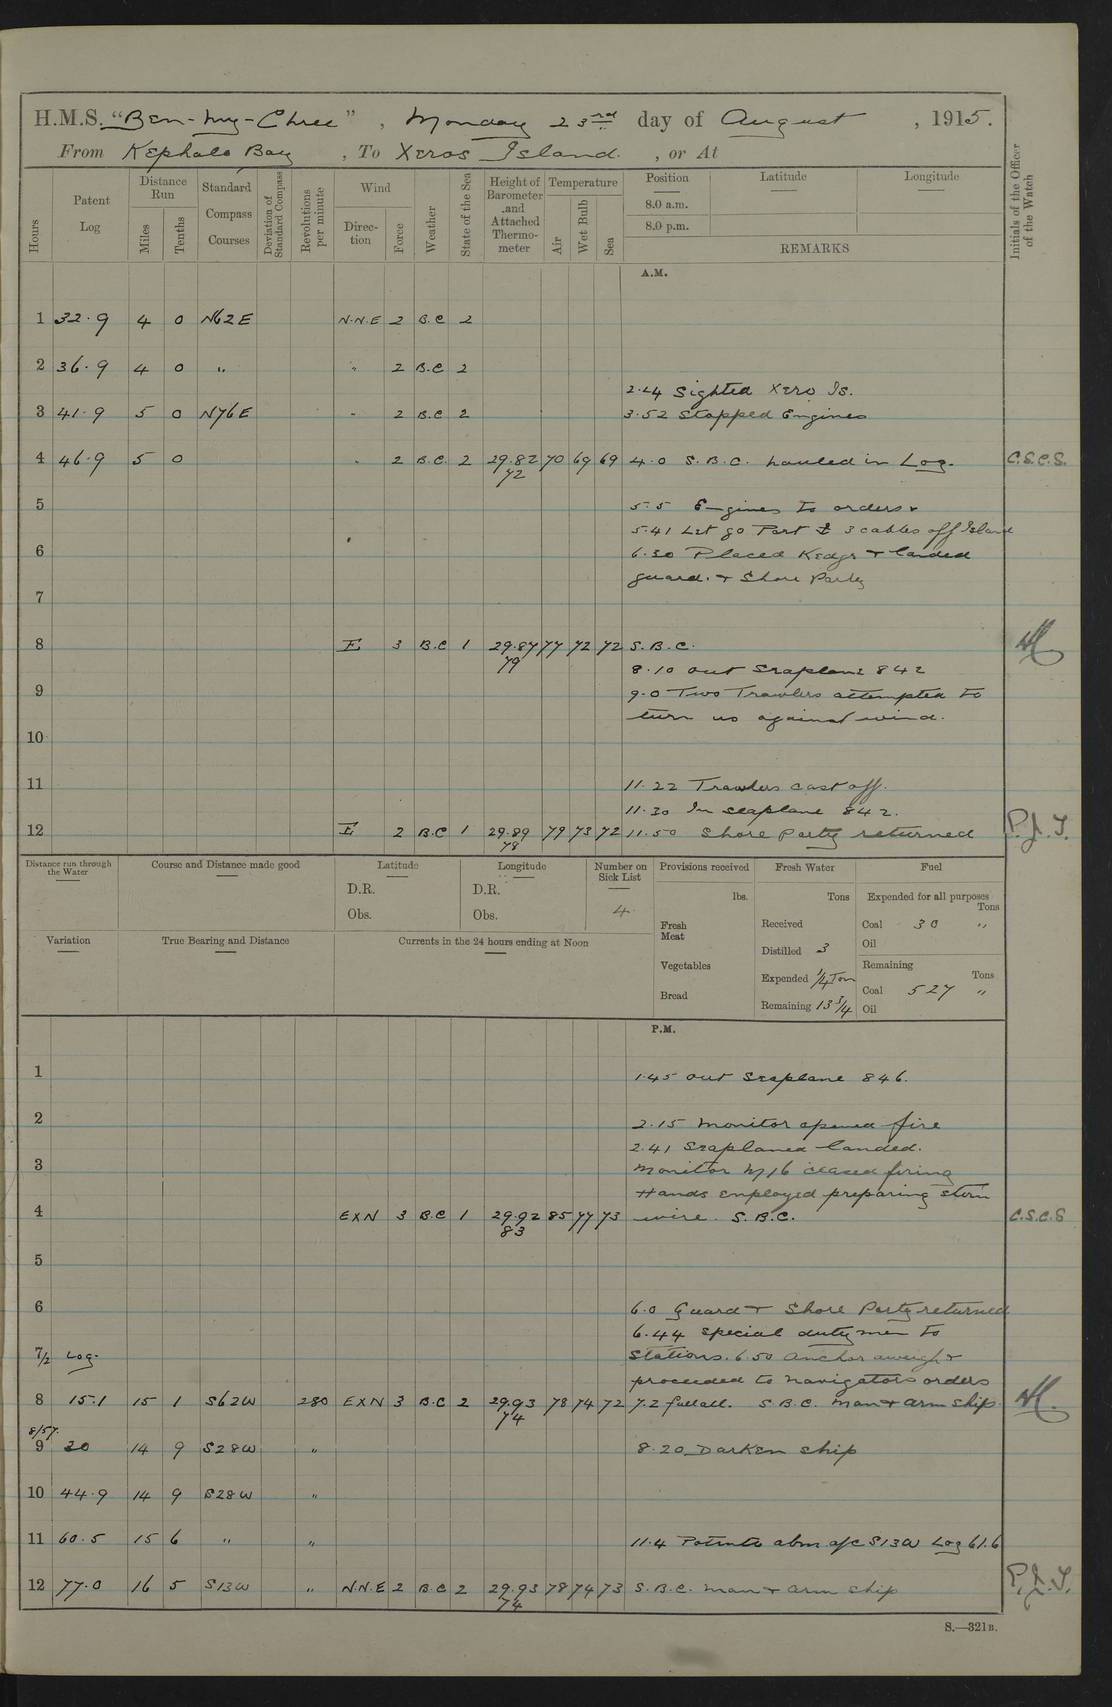 H.M.S. "Ben-my-Chree", Monday 23rd day of August, 1915.
From Kephalo Bay, To Xeros Island., or At
Hours Patent Log Distance Run Miles Tenths Standard Compass Courses Deviation of Standard Compass Revolutions per minute Wind Direction Force Weather State of the Sea Height of Barometer and Attached Thermometer Temperature Air Wet Bulb Sea Position 8.0 a.m. 8.0 p.m. Latitude Longitude REMARKS Initials of the Officer of the Watch
A.M.
1 32.9 4 0 N62E N.N.E 2 B.C 2
2 36.9 4 0 " " 2 B.C 2
2.44 Sighted Xero Is.
3 41.9 5 0 N76E " 2 B.C 2 3.52 Stopped Engines
4 46.9 5 0 " 2 B.C. 2 29.82 70 69 69 4.0 S.B.C. hauled in Log. C.S.C.S.
72
5 5.5 Engines to orders
5.41 Let go Port 3 cables off Island
6 6.30 Placed Kedge + landed
guard. + Shore Party
7
8 E 3 B.C 1 29.87 77 72 72 S.B.C.
79 8.10 out Seaplane 842
9 9.0 Two Trawlers attempted to
turn us against wind.
10
11 11.22 Trawlers cast off.
11.30 In seaplane 842.
12 E 2 B.C 1 29.89 79 73 72 11.50 Shore party returned P.J.T.
78
Distance run through the Water Course and Distance made good Latitude Longitude Number on Sick List Provisions received Fresh Water Fuel
D.R. D.R. lbs. Tons Expended for all purposes Tons
Obs. Obs. 4 Fresh Meat Received Coal 30 "
Variation True Bearing and Distance Currents in the 24 hours ending at Noon Distilled 3 Oil
Vegetables Expended 1/4 Ton Remaining Tons
Bread Remaining 13 3/4 Coal 527 "
Oil
P.M.
1 1.45 out Seaplane 846.
2 2.15 Monitor opened fire
2.41 Seaplaned landed.
3 Monitor M16 ceased firing
Hands employed preparing stern
4 EXN 3 B.C 1 29.92 85 77 73 wire. S.B.C. C.S.C.S
83
5
6 6.0 Guard + Shore Party returned
6.44 special duty men to
7/2 Log. Stations. 6.50 Anchor aweigh +
proceeded to navigators orders
8 15.1 15 1 S62W 280 EXN 3 B.C 2 29.93 78 74 72 7.2 full all. S.B.C. Man + arm ship.
74
8/57.
9 30 14 9 S28W " 8.20 Darken ship
10 44.9 14 9 S28W "
11 60.5 15 6 " " 11.4 abm a/c S13W Log 61.6
12 77.0 16 5 S13W " N.N.E 2 B.C 2 29.93 78 74 73 S.B.C. Man + arm ship P.J.T.
74
S.—321B.